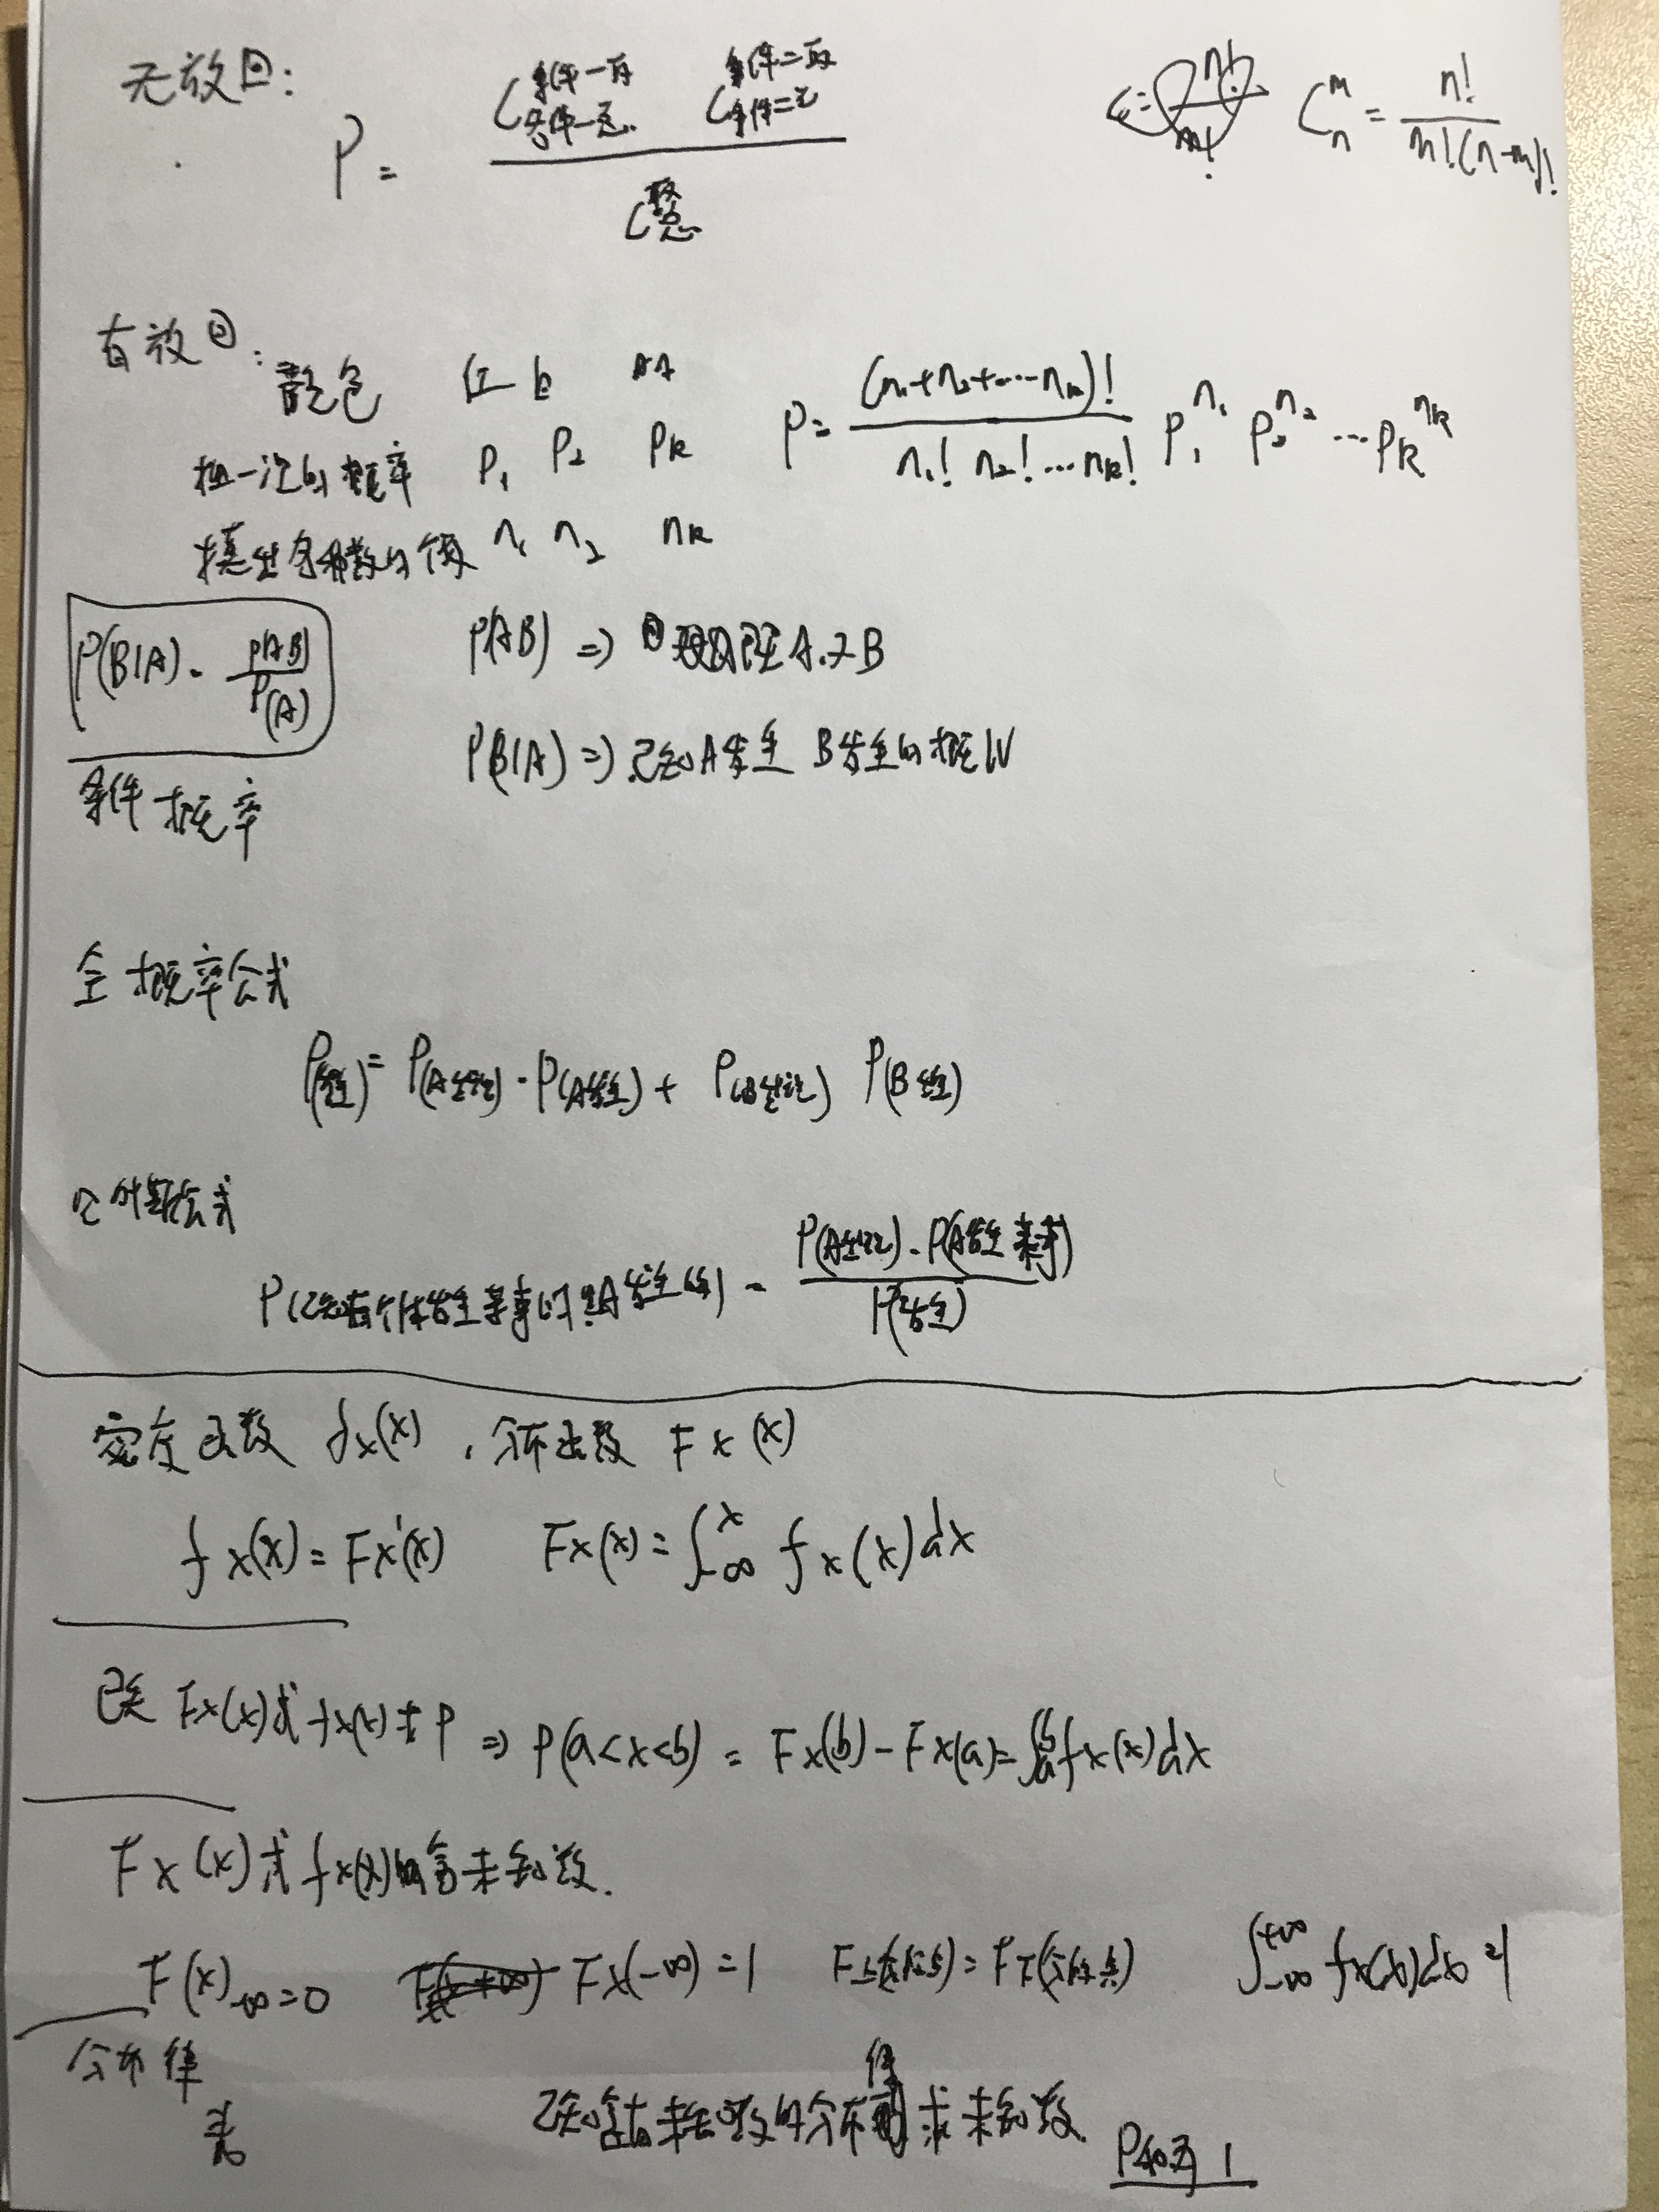 无放回:
P = C条件一取 条件一总 C条件二取 条件二总 / C取 总
C_n^m = n! / m!(n-m)!
有放回:
颜色 红 白
摸一次的概率 P₁ P₂ Pk
摸出各种数的个数 n₁ n₂ nk
P = (n₁+n₂+…nk)! / n₁! n₂! … nk! P₁^n₁ P₂^n₂ … Pk^nk
P(B|A) = P(AB) / P(A)
P(AB) ⇒ A 又 B
P(B|A) ⇒ 已知A发生 B发生的概率
条件概率
全概率公式
P(发生) = P(A占比) · P(A发生) + P(B占比) P(B发生)
贝叶斯公式
P(已知有个体发生某事时是A发生的) = P(A占比) · P(A发生某事) / P(发生)
密度函数 fx(x) , 分布函数 Fx(x)
fx(x) = Fx'(x) Fx(x) = ∫_{-∞}^{x} fx(x)dx
已知 Fx(x)或fx(x)求P ⇒ P(a<x<b) = Fx(b) - Fx(a) = ∫_a^b fx(x)dx
Fx(x)或fx(x)中含未知数.
F(x)-∞=0 Fx(-∞)=1 F上(分段点)=F下(分段点) ∫_{-∞}^{+∞} fx(x)dx=1
分布律
表
已知含未知数的分布律求未知数 P和为1